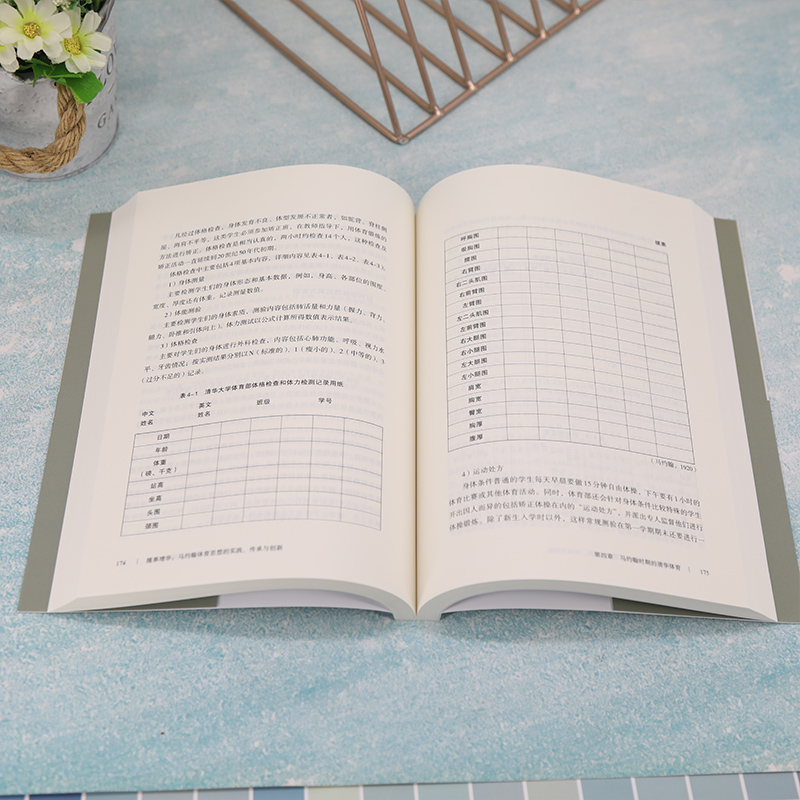 凡经过体格检查，身体发育有不良、体型发现不正常者，如驼背、脊柱侧
屈、两肩不平等，这类学生必须参加矫正班，在教师指导下，用体育锻炼的
方法进行矫正。体格检查是相当认真的，两小时约检查14个人，这种检查及
矫正活动一直延续到20世纪50年代初期。
体格检查中主要包括4项基本内容，详细内容见表4-1、表4-2、表4-3。
1）身体测量
主要检测学生们的身体形态和基本数据，例如，身高、各部位的围度、
宽度、厚度还有体重，记录测量数值。
2）体能测验
主要检测学生们的身体素质，测验内容包括肺活量和力量（握力、背力、
腿力、卧推和引体向上）。体力测试以公式计算所得数值表示结果。
3）体格检查
主要对学生们的身体进行外科检查，内容包括心肺功能、呼吸、视力水
平、牙齿情况；按实测结果分别以N（标准的）、1（瘦小的）、2（中等的）、3
（过分不足的）记录。
表4-1 清华大学体育部体格检查和体力检测记录用纸
中文姓名 英文姓名 班级 学号
日期
年龄
体重
（磅、千克）
站高
坐高
头围
颈围
174 | 提事增华：马约翰体育思想的实践、传承与创新
续表
呼胸围
吸胸围
腰围
右臂围
右二头肌围
右前臂围
左臂围
左二头肌围
左前臂围
右大腿围
右小腿围
左大腿围
左小腿围
肩宽
胸宽
臀宽
胸厚
腹厚
（马约翰，1920）
4）运动处方
身体条件普通的学生每天早晨要做15分钟自由体操，下午要有1小时的
体育比赛或其他体育活动。同时，体育部还会针对身体条件比较特殊的学生
开出因人而异的包括矫正体操在内的“运动处方”，并派出专人监督他们进行
体操锻炼。除了新生入学时以外，这样常规测验在第一学期期末还要进行一
第四章 马约翰时期的清华体育 | 175